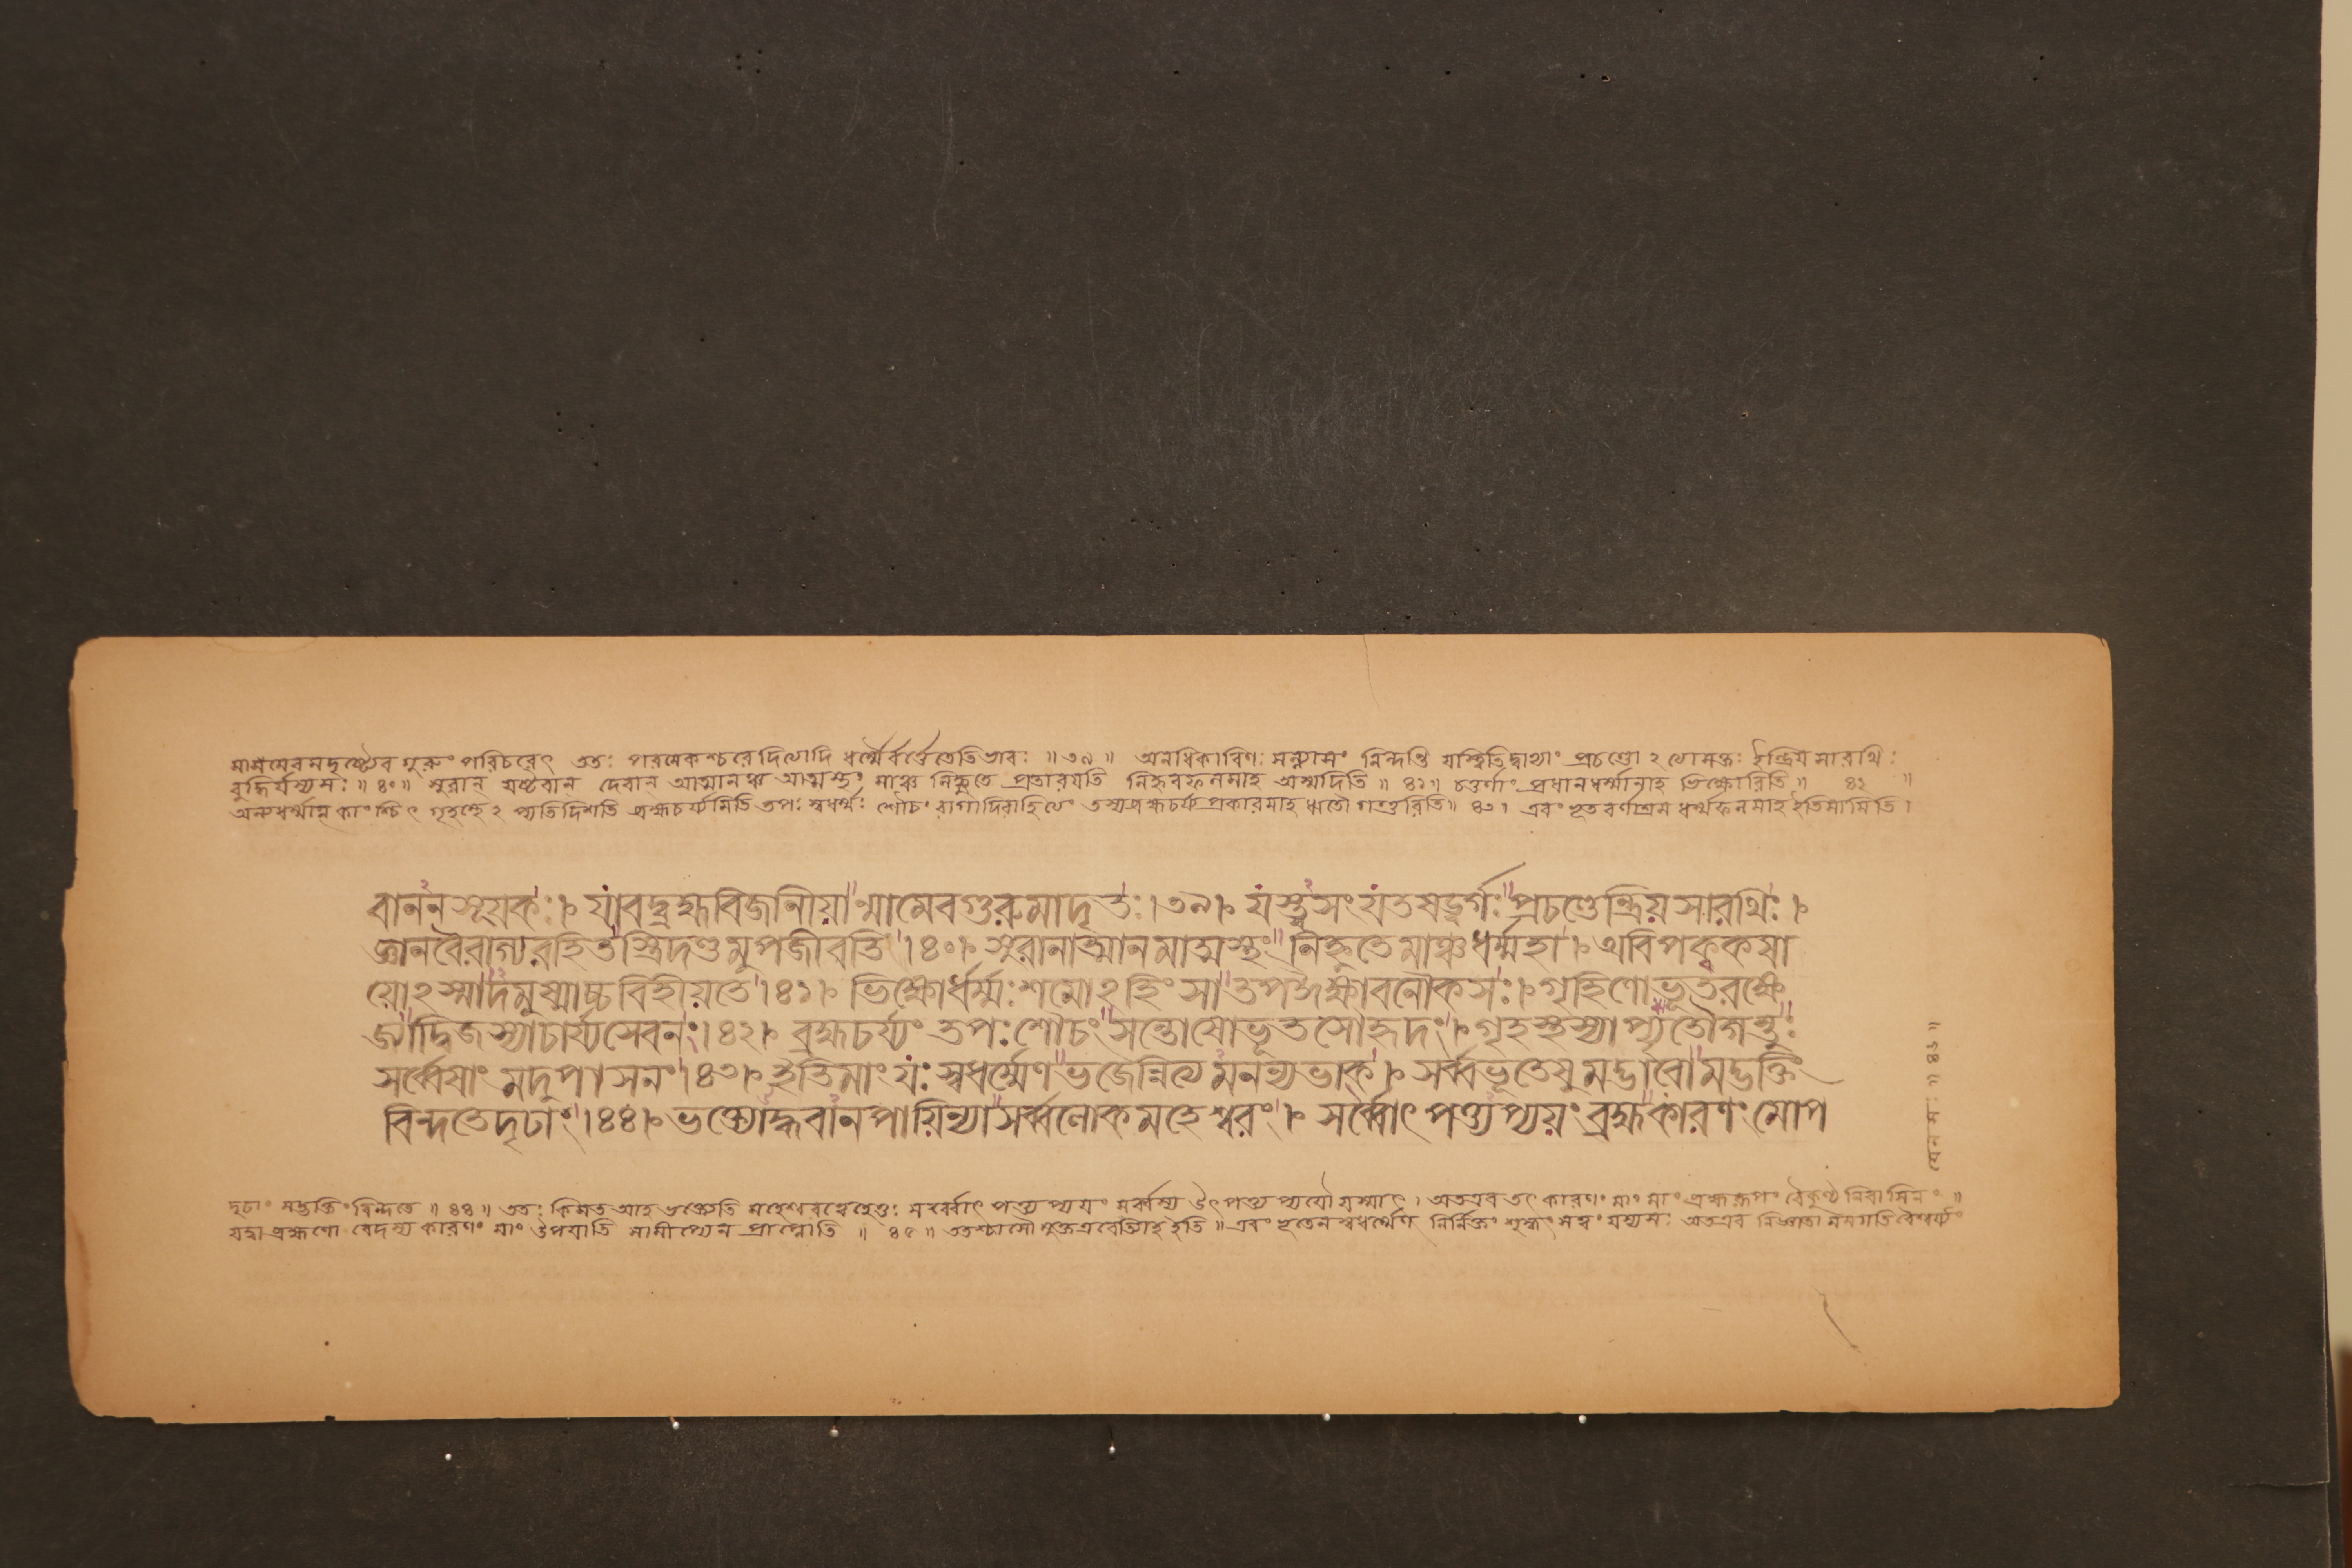 মামেবমদৃষ্ট্যৈব গুরুং পরিচরেৎ ততঃ পরমেকশ্চরেদিত্যাদি ধর্ম্মৈর্বর্ত্তেতেতিভাবঃ ॥৩৯॥ অনধিকারিণঃ সন্ন্যাসং নিন্দতি যস্ত্বিতিদ্বাভ্যাং প্রচণ্ডো২ত্যাসক্তঃ ইন্দ্রিয়সারথিঃ
বুদ্ধির্যস্যসঃ ॥৪০॥ সুরান্ যষ্টব্যান্ দেবান্ আত্মানঞ্চ আত্মস্থং মাঞ্চ নিহ্নুতে প্রতারয়তি নিহ্নবফলমাহ অস্মাদিতি ॥ ৪১॥ চতুর্ণাং প্রধানধর্ম্মানাহ ভিক্ষোরিতি ॥ ৪২ ॥
অন্যধর্ম্মান্ কাংশ্চিৎ গৃহস্থে২প্যতিদিশতি ব্রহ্মচর্য্যমিতি তপঃ স্বধর্ম্মঃ শৌচং রাগাদিরাহিত্যং তস্যব্রহ্মচর্য্যপ্রকারমাহ ঋতৌ গন্তুরিতি॥ ৪৩। এবং ভূতবর্ণাশ্রম ধর্ম্মফলমাহ ইতিমামিতি।
বাননসূয়কঃ। যাবদ্ব্রহ্মবিজানীয়ান্মামেবগুরুমাদৃতঃ।৩৯। যস্ত্বসংযতষড়্বর্গঃপ্রচণ্ডেন্দ্রিয়সারথিঃ।
জ্ঞানবৈরাগ্যরহিতস্ত্রিদণ্ডমুপজীবতি।৪০। সুরানাত্মানমাত্মস্থংনিহ্নুতেমাঞ্চধর্ম্মহা। অবিপক্বকষা
য়ো২স্মাদমুষ্মাচ্চবিহীয়তে।৪১। ভিক্ষোর্ধর্ম্মঃশমো২হিংসাতপঈক্ষাবনৌকসঃ।গৃহিণোভূতরক্ষে
জ্যাদ্বিজস্যাচার্য্যসেবনং।৪২। ব্রহ্মচর্য্যং তপঃশৌচংসন্তোষোভূতসৌহৃদং।গৃহস্থস্যাপ্যৃতৌগন্তুঃ
সর্ব্বেষাং মদুপাসনং।৪৩। ইতিমাং যঃ স্বধর্ম্মেণভজেন্নিত্যমনন্যভাক্। সর্ব্বভূতেষুমদ্ভাবোমদ্ভক্তিং
বিন্দতেদৃঢাং।৪৪। ভক্ত্যোদ্ধবানপায়িন্যাসর্ব্বলোকমহেশ্বরং। সর্ব্বোৎপত্ত্যপ্যয়ং ব্রহ্মকারণং মোপ
দৃঢাং মদ্ভক্তিং বিন্দতে ॥ ৪৪॥ ততঃ কিমত আহ ভক্ত্যেতি মহেশ্বরত্বেহেতুঃ সর্ব্বোৎপত্ত্যপ্যয়ং সর্ব্বস্য উৎপত্ত্যপ্যয়ৌ যস্মাৎ। অতএব তৎ কারণং মাং ব্রহ্মরূপং বৈকুণ্ঠনিবাসিনং ॥
যদ্বা ব্রহ্মণো বেদস্য কারণং মাং উপযাতি সামীপ্যেন প্রাপ্নোতি ॥ ৪৫ ॥ ততশ্চাসৌ মুক্তএবেত্যাহ ইতি ॥ এবং ভূতেন স্বধর্ম্মেণ নির্ণিক্তং শুদ্ধং সত্ত্বং যস্যসঃ অতএব